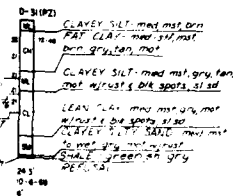 D-31(PZ)
ML
CLAYEY SILT- med mst, brn
FAT CLAY- med-stf, mst,
CH
brn, gry, tan, mot
CLAYEY SILT- med mst, gry, tan,
ML
mot w/rust & blk spots, sl sd
LEAN CLAY med mst gry, mot
CL
w/rust & blk spots, sl sd
CLAYEY SILTY SAND med mst
to wet gry mot w/rust
SHALE green sh gry
REFUSAL
24 5'
10-6-88